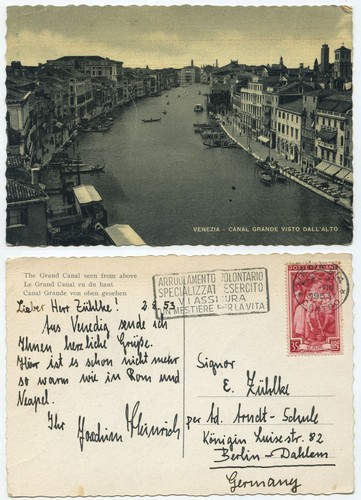 VENEZIA - CANAL GRANDE VISTO DALL'ALTO
The Grand Canal seen from above
Le Grand Canal vu du haut
Canal Grande von oben gesehen
Lieber Herr Zühlke! 2.8.53
Aus Venedig sende ich
Ihnen herzliche Grüße.
Hier ist es schon nicht mehr
so warm wie in Rom und
Neapel.
Ihr Joachim Heinrich
ARRUOLAMENTO VOLONTARIO
SPECIALIZZATI ESERCITO
VI ASSICURA
UN MESTIERE PER LA VITA
POSTE ITALIANE
1953
35
Signor
E. Zühlke
per Ad. Arndt-Schule
Königin Luisestr. 82
Berlin-Dahlem
Germany